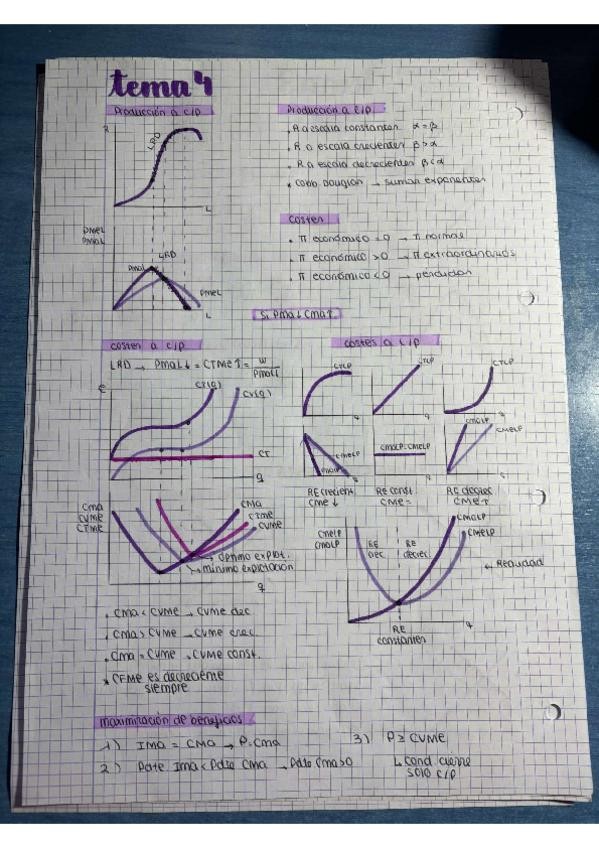 tema 4
Producción a c/p
Producción a c/p.
. R a escala constantes α = β
. R a escala crecientes β > α
. R a escala decrecientes β < α
* Cobb Douglas → suman exponentes
LRD
L
PMeL
PMaL
LRD
PMaL
PMeL
L
Costes
. π económico = 0 → π normal
. π económico > 0 → π extraordinarios
. π económico < 0 → perdidas
Si PMa↓ CMa↑.
costes a c/p
LRD → PMaL↓ = CTMe↑ = w/PMaL↓
€
CT(q)
CV(q)
CT
q
CMa
CVMe
CTMe
CMa
CTMe
CVMe
óptimo explot.
mínimo explotación
q
costes a L/p
CTLP
CTLP
CTLP
q
q
q
CMeLP
CMaLP
CMaLP=CMeLP
CMaLP
CMeLP
RE crecient
CMe ↓
RE const.
CMe =
RE decrec
CMe ↑
CMeLP
CMaLP
RE
crec.
RE
decrec.
CMaLP
CMeLP
← Realidad
q
RE
constantes
. CMa < CVMe → CVMe dec
. CMa > CVMe → CVMe crec.
. CMa = CVMe → CVMe const.
* CFMe es decreciente
siempre
maximización de beneficios
1) IMa = CMa → P=CMa
2) Pdte IMa < Pdte CMa → Pdte CMa>0
3) P ≥ CVMe
↳ cond cierre
solo c/p